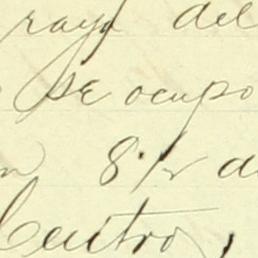 raya del
se ocupo
8 1/2 d
Centro,